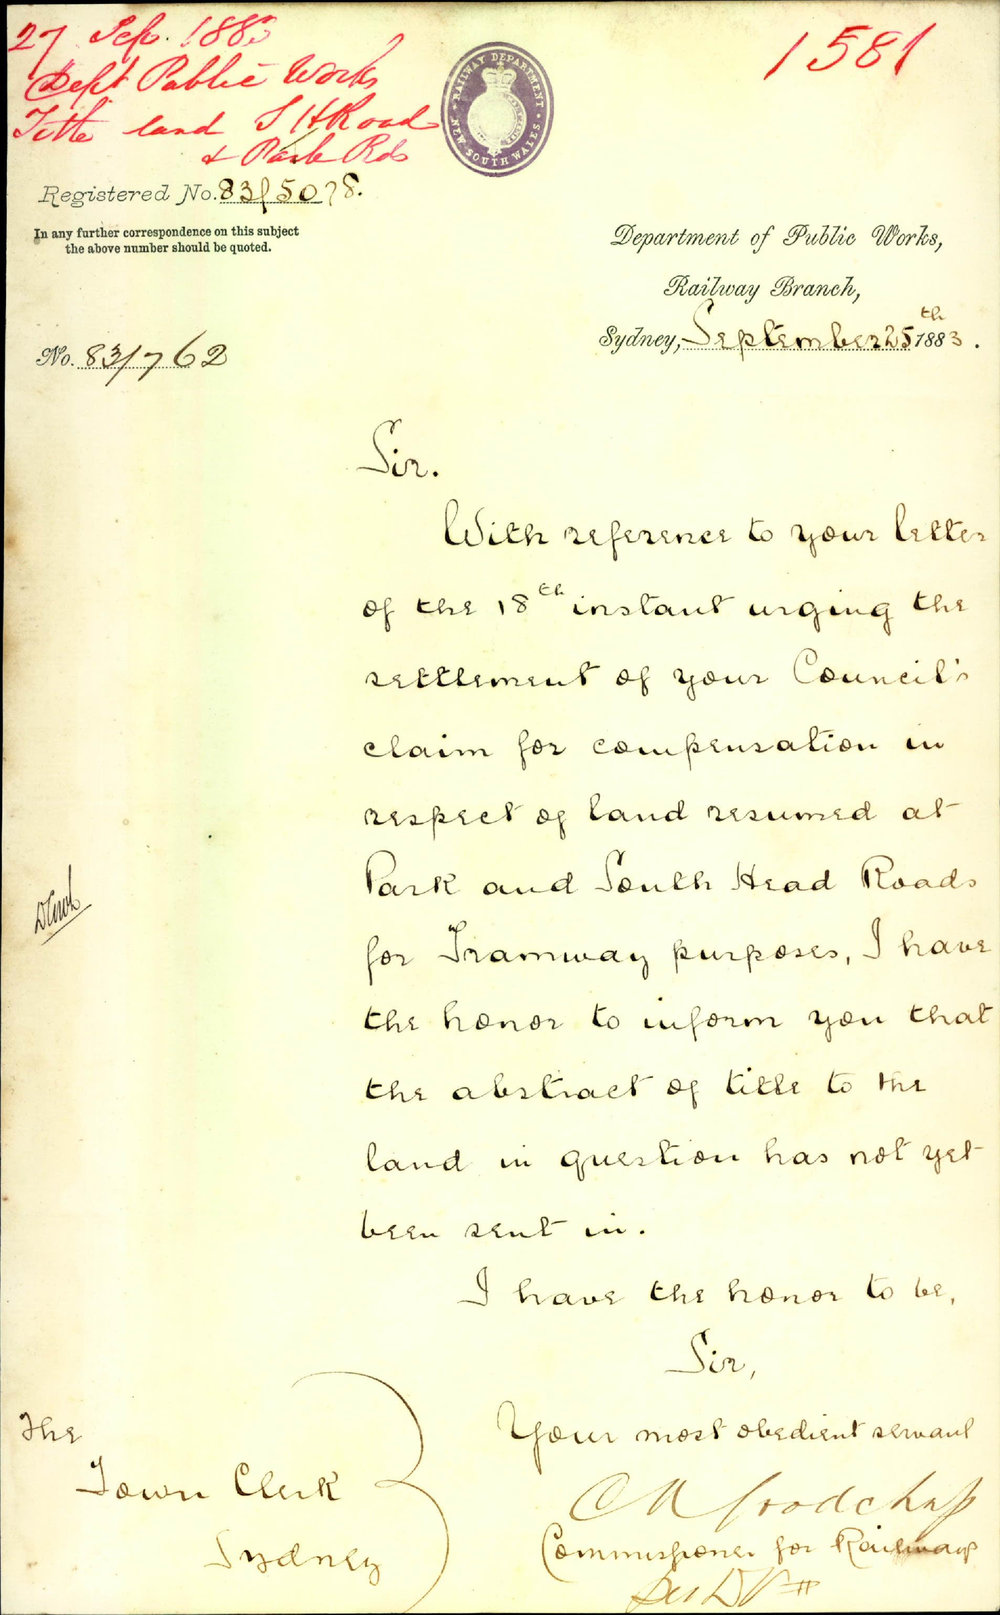 27 Sep. 1883
Dept Public Works
Title land S H Road
& Park Rds
1581
RAILWAY DEPARTMENT
NEW SOUTH WALES
Registered No. 83/5078.
In any further correspondence on this subject
the above number should be quoted.
Department of Public Works,
Railway Branch,
Sydney, September 25th 1883.
No. 83/762
Sir.
With reference to your letter
of the 18th instant urging the
settlement of your Council's
claim for compensation in
respect of land resumed at
Park and South Head Roads
for Tramway purposes, I have
the honor to inform you that
the abstract of title to the
land in question has not yet
been sent in.
I have the honor to be,
Sir,
Your most obedient servant
Ch A Goodchap
Commissioner for Railways
The
Town Clerk
Sydney